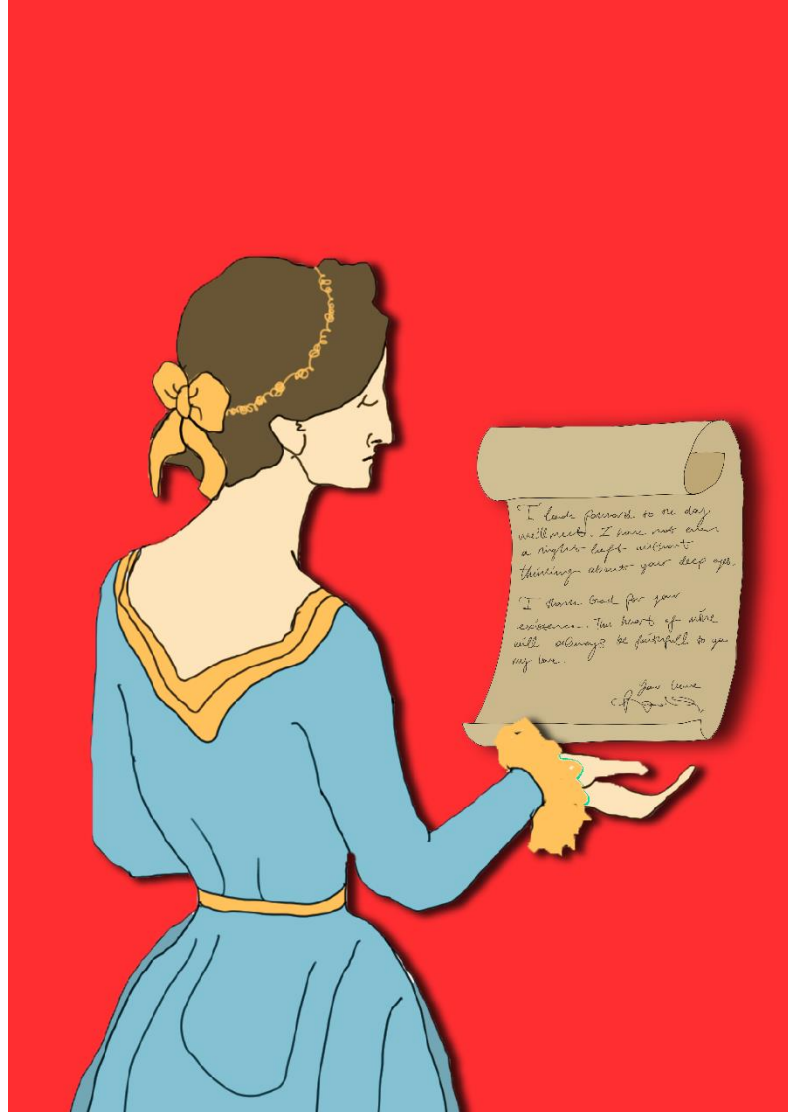 "I look forward to the day
we'll meet. I have not even
a night left without
thinking about your deep eyes.
"I thank God for your
existence. This heart of mine
will always be faithfull to you
my love.
Your